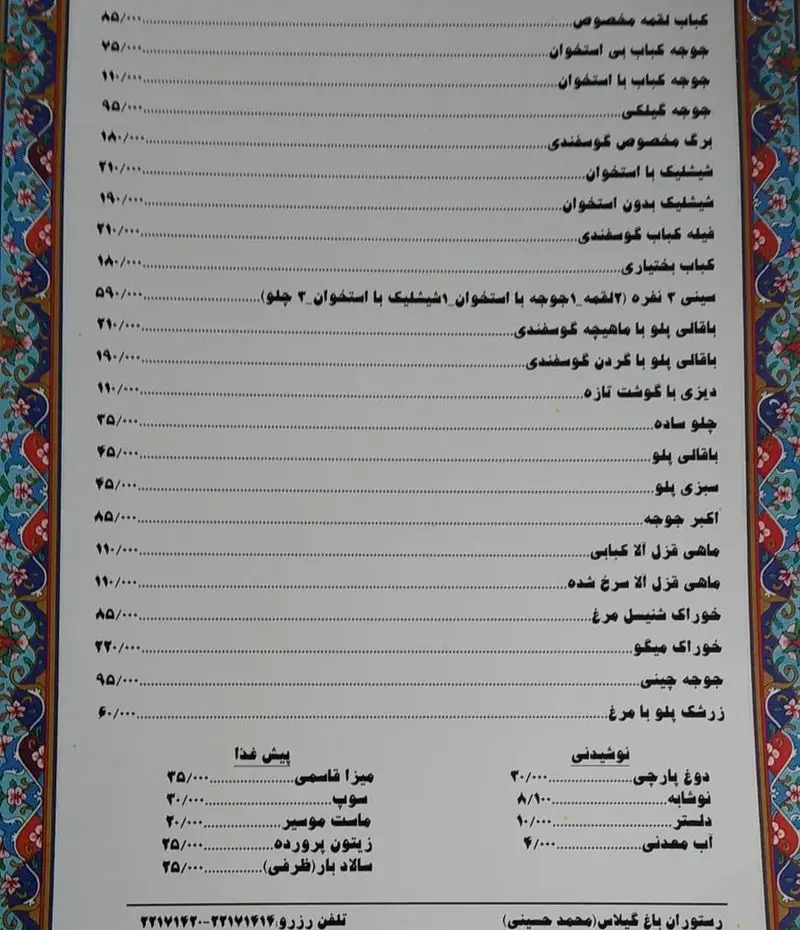 کباب لقمه مخصوص........۸۵/۰۰۰
جوجه کباب بی استخوان........۷۵/۰۰۰
جوجه کباب با استخوان........۱۱۰/۰۰۰
جوجه گیلکی........۹۵/۰۰۰
برگ مخصوص گوسفندی........۱۸۰/۰۰۰
شیشلیک با استخوان........۲۱۰/۰۰۰
شیشلیک بدون استخوان........۱۹۰/۰۰۰
فیله کباب گوسفندی........۲۱۰/۰۰۰
کباب بختیاری........۱۸۰/۰۰۰
سینی ۳ نفره (۲لقمه_۱جوجه با استخوان_۱شیشلیک با استخوان_۳ چلو)........۵۹۰/۰۰۰
باقالی پلو با ماهیچه گوسفندی........۲۱۰/۰۰۰
باقالی پلو با گردن گوسفندی........۱۹۰/۰۰۰
دیزی با گوشت تازه........۱۱۰/۰۰۰
چلو ساده........۳۵/۰۰۰
باقالی پلو........۴۵/۰۰۰
سبزی پلو........۴۵/۰۰۰
اکبر جوجه........۸۵/۰۰۰
ماهی قزل آلا کبابی........۱۱۰/۰۰۰
ماهی قزل آلا سرخ شده........۱۱۰/۰۰۰
خوراک شنیسل مرغ........۸۵/۰۰۰
خوراک میگو........۲۲۰/۰۰۰
جوجه چینی........۹۵/۰۰۰
زرشک پلو با مرغ........۶۰/۰۰۰
نوشیدنی
دوغ پارچی........۳۰/۰۰۰
نوشابه........۸/۱۰۰
دلستر........۱۰/۰۰۰
آب معدنی........۴/۰۰۰
پیش غذا
میزا قاسمی........۳۵/۰۰۰
سوپ........۳۰/۰۰۰
ماست موسیر........۲۰/۰۰۰
زیتون پرورده........۲۵/۰۰۰
سالاد بار(ظرفی)........۲۵/۰۰۰
رستوران باغ گیلاس(محمد حسینی)
تلفن رزرو:۲۲۱۷۱۴۱۴-۲۲۱۷۱۴۲۰